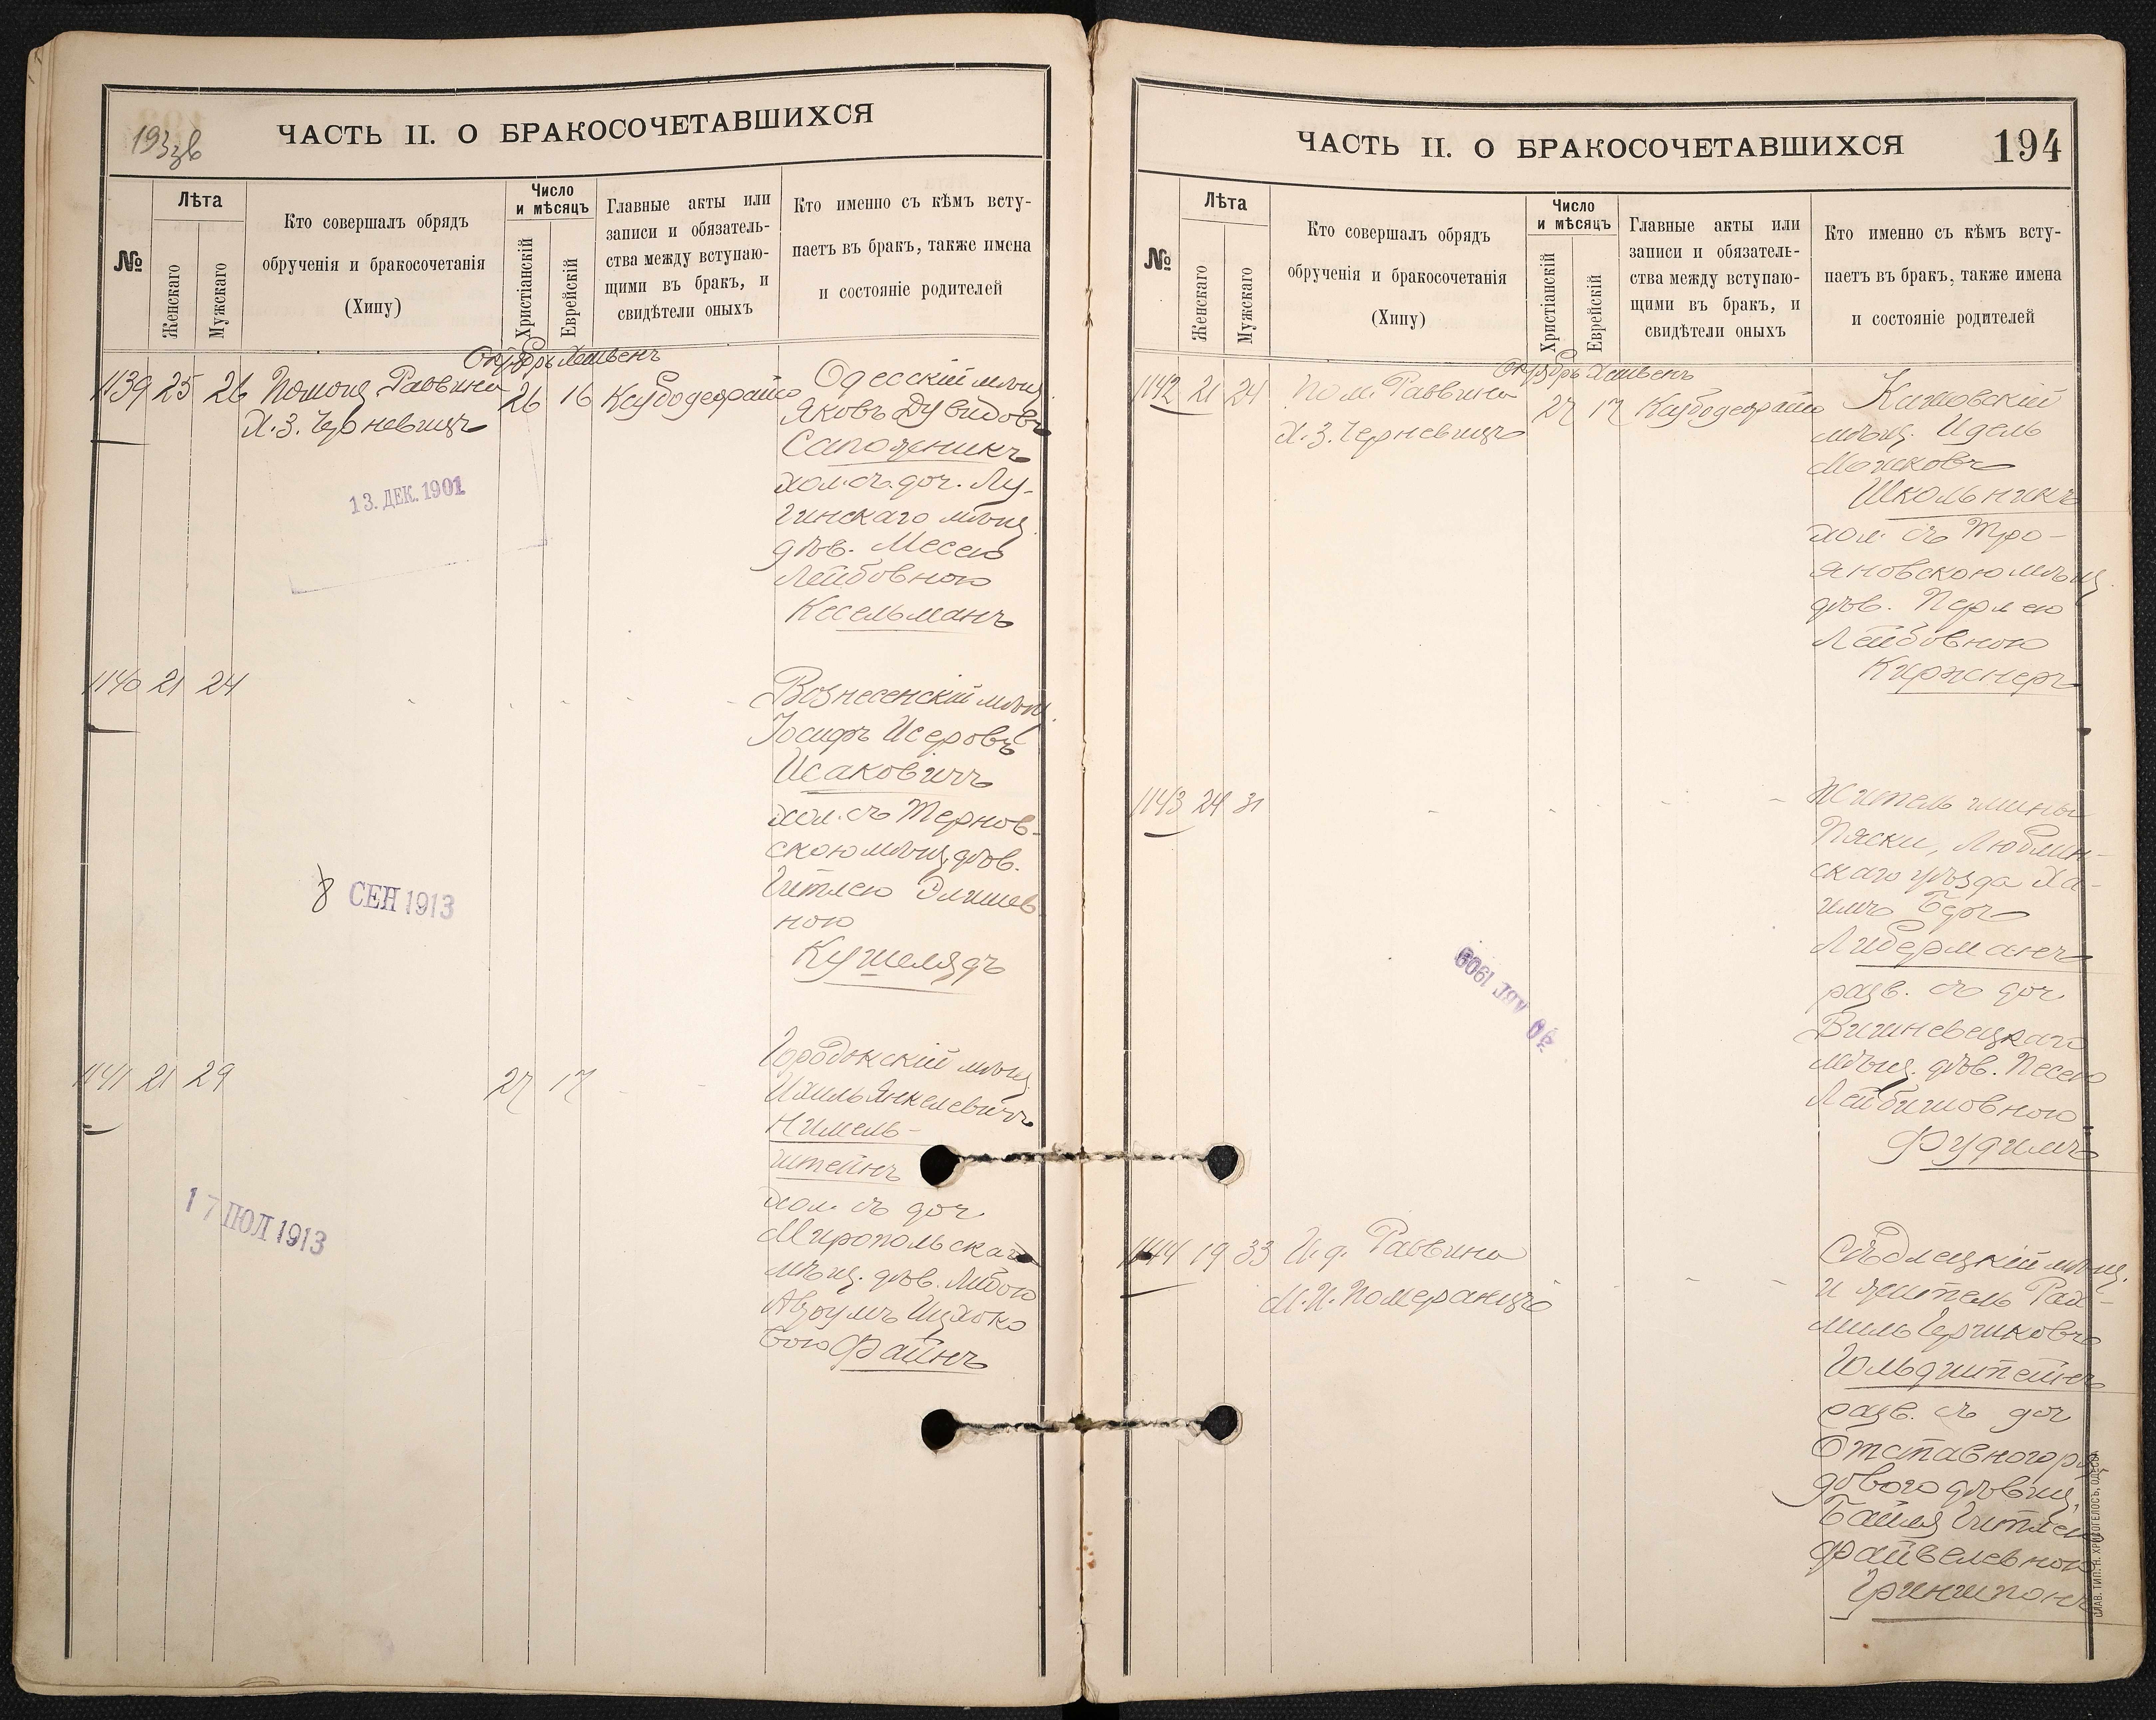 193 зв
ЧАСТЬ II. О БРАКОСОЧЕТАВШИХСЯ
№
Лѣта
Женскаго
Мужскаго
Кто совершалъ обрядъ
обрученія и бракосочетанія
(Хипу)
Число
и мѣсяцъ
Христіанскій
Еврейскій
Главные акты или
записи и обязатель-
ства между вступаю-
щими въ бракъ, и
свидѣтели оныхъ
Кто именно съ кѣмъ всту-
паетъ въ бракъ, также имена
и состояніе родителей
Октябрь Хешвенъ
1139 25 26 Помощ Раввина 26 16
Х.З. Черневицъ
Одесскій мѣщ
Яковъ Дувидовъ
Сапожникъ
хол. съ доч. Лу-
гинскаго мѣщ
дѣв. Месею
Лейбовною
Кесельманъ
13. ДЕК. 1901
1140 21 24
Вознесенскій мѣщ.
Іосифъ Исеровъ
Исаковичъ
хол. съ Тернов-
скою мѣщ. дѣв.
Гитлею Элишев-
ною
Кушелядъ
8 СЕН 1913
1141 21 29 27 17
Городокскій мѣщ.
Ихиль Янкелевичъ
Нимель-
штейнъ
хол. съ доч
Миропольскаго
мѣщ. дѣв. Либою
Аврумъ Ицхоко
вою Файнъ
17 ІЮЛ 1913
ЧАСТЬ II. О БРАКОСОЧЕТАВШИХСЯ
194
№
Лѣта
Женскаго
Мужскаго
Кто совершалъ обрядъ
обрученія и бракосочетанія
(Хипу)
Число
и мѣсяцъ
Христіанскій
Еврейскій
Главные акты или
записи и обязатель-
ства между вступаю-
щими въ бракъ, и
свидѣтели оныхъ
Кто именно съ кѣмъ всту-
паетъ въ бракъ, также имена
и состояніе родителей
Октябрь Хешвенъ
1142 21 24 Пом. Раввина 27 17
Х.З. Черневицъ
мѣщ. Идель
Мошковъ
Школьникъ
хол. съ Тро-
яновскою мѣщ
дѣв. Перлею
Лейбовною
Киржнеръ
1143 24 31
Житель гмины
Пяски, Люблин-
скаго уѣзда Ха-
имъ Беръ
Либерманъ
разв. съ доч
Вишневецкаго
мѣщ. дѣв. Песею
Лейбишовною
Фудимъ
30 АВГ 1909
1144 19 33 И.д. Раввина
М.И. Померанцъ
Сѣдлецкій мѣщ.
и житель Рах-
миль Гершковъ
Гольдштейнъ
разв. съ доч
Отставного ря
дового дѣвиц.
Бейля Гитлею
Файвелевною
Гриншпонъ
СЛАВ. ТИП. Н. ХРИСОГЕЛОСЪ, ОДЕССА